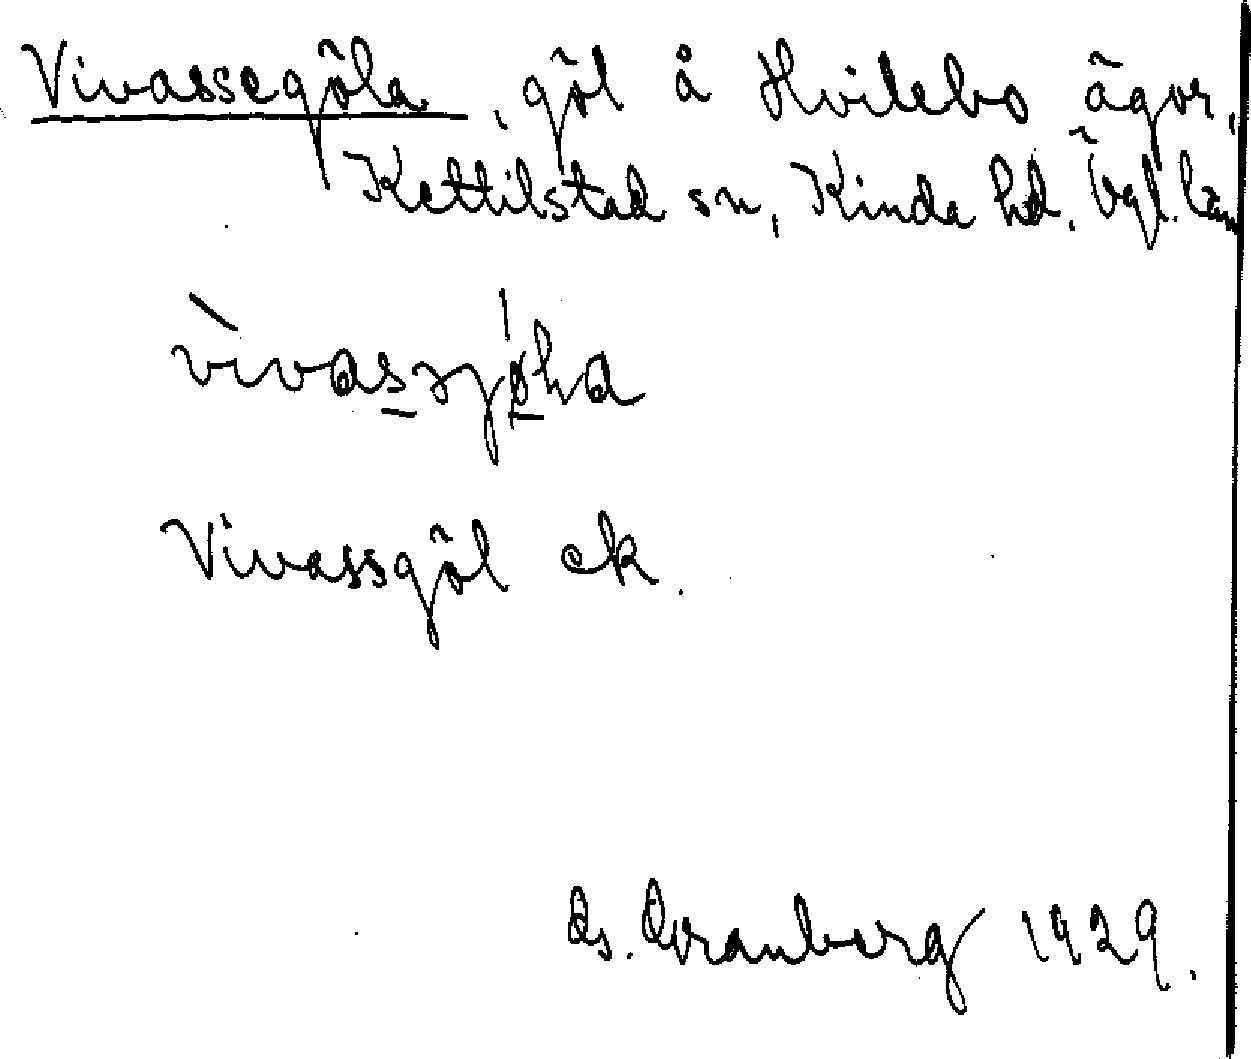 Vivassegöla, göl å Hvilebo ägor,
Kettilstad sn, Kinda hd, Ögl. län
Vivassgöl ek.
G. Granberg 1929.